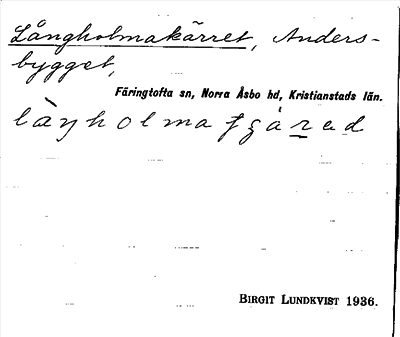 Långholmakärret, Anders-
bygget,
Färingtofta sn, Norra Åsbo hd, Kristianstads län.
BIRGIT LUNDKVIST 1936.